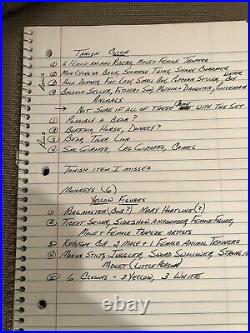 Tanish Color
① 2 Female Animal Riders, Male + Female Trapeze
② Man Lying on Back, Siamese Twins, Snake Charmer
③ Male Dancer, Fat Lady, Small Boy, Popcorn Seller, Boy
④ Balloon Seller, Father + Son, Mother + Daughter,
Animals
→ Not sure if all of these come with the set
① Possibly a Bear?
② Buffalo, Horse, Donkey?
③ Bear, Tiger, Lion
④ Seal, Giraffe, Leg Giraffe, Camel
Tanish Item I missed
Monkeys (6)
Yellow Figures
① Ringmaster (Bob?) Mary Hartline (?)
② Ticket Seller, Sideshow Announcer, Female Figure,
Male + Female Trapeze Artists
③ Keystone Bob 2 Male + 1 Female Animal Trainers
④ Juggler, Sword Swallower, Strong Man
Midget (Little Person)
⑤ 6 Clowns - 3 Yellow, 3 White